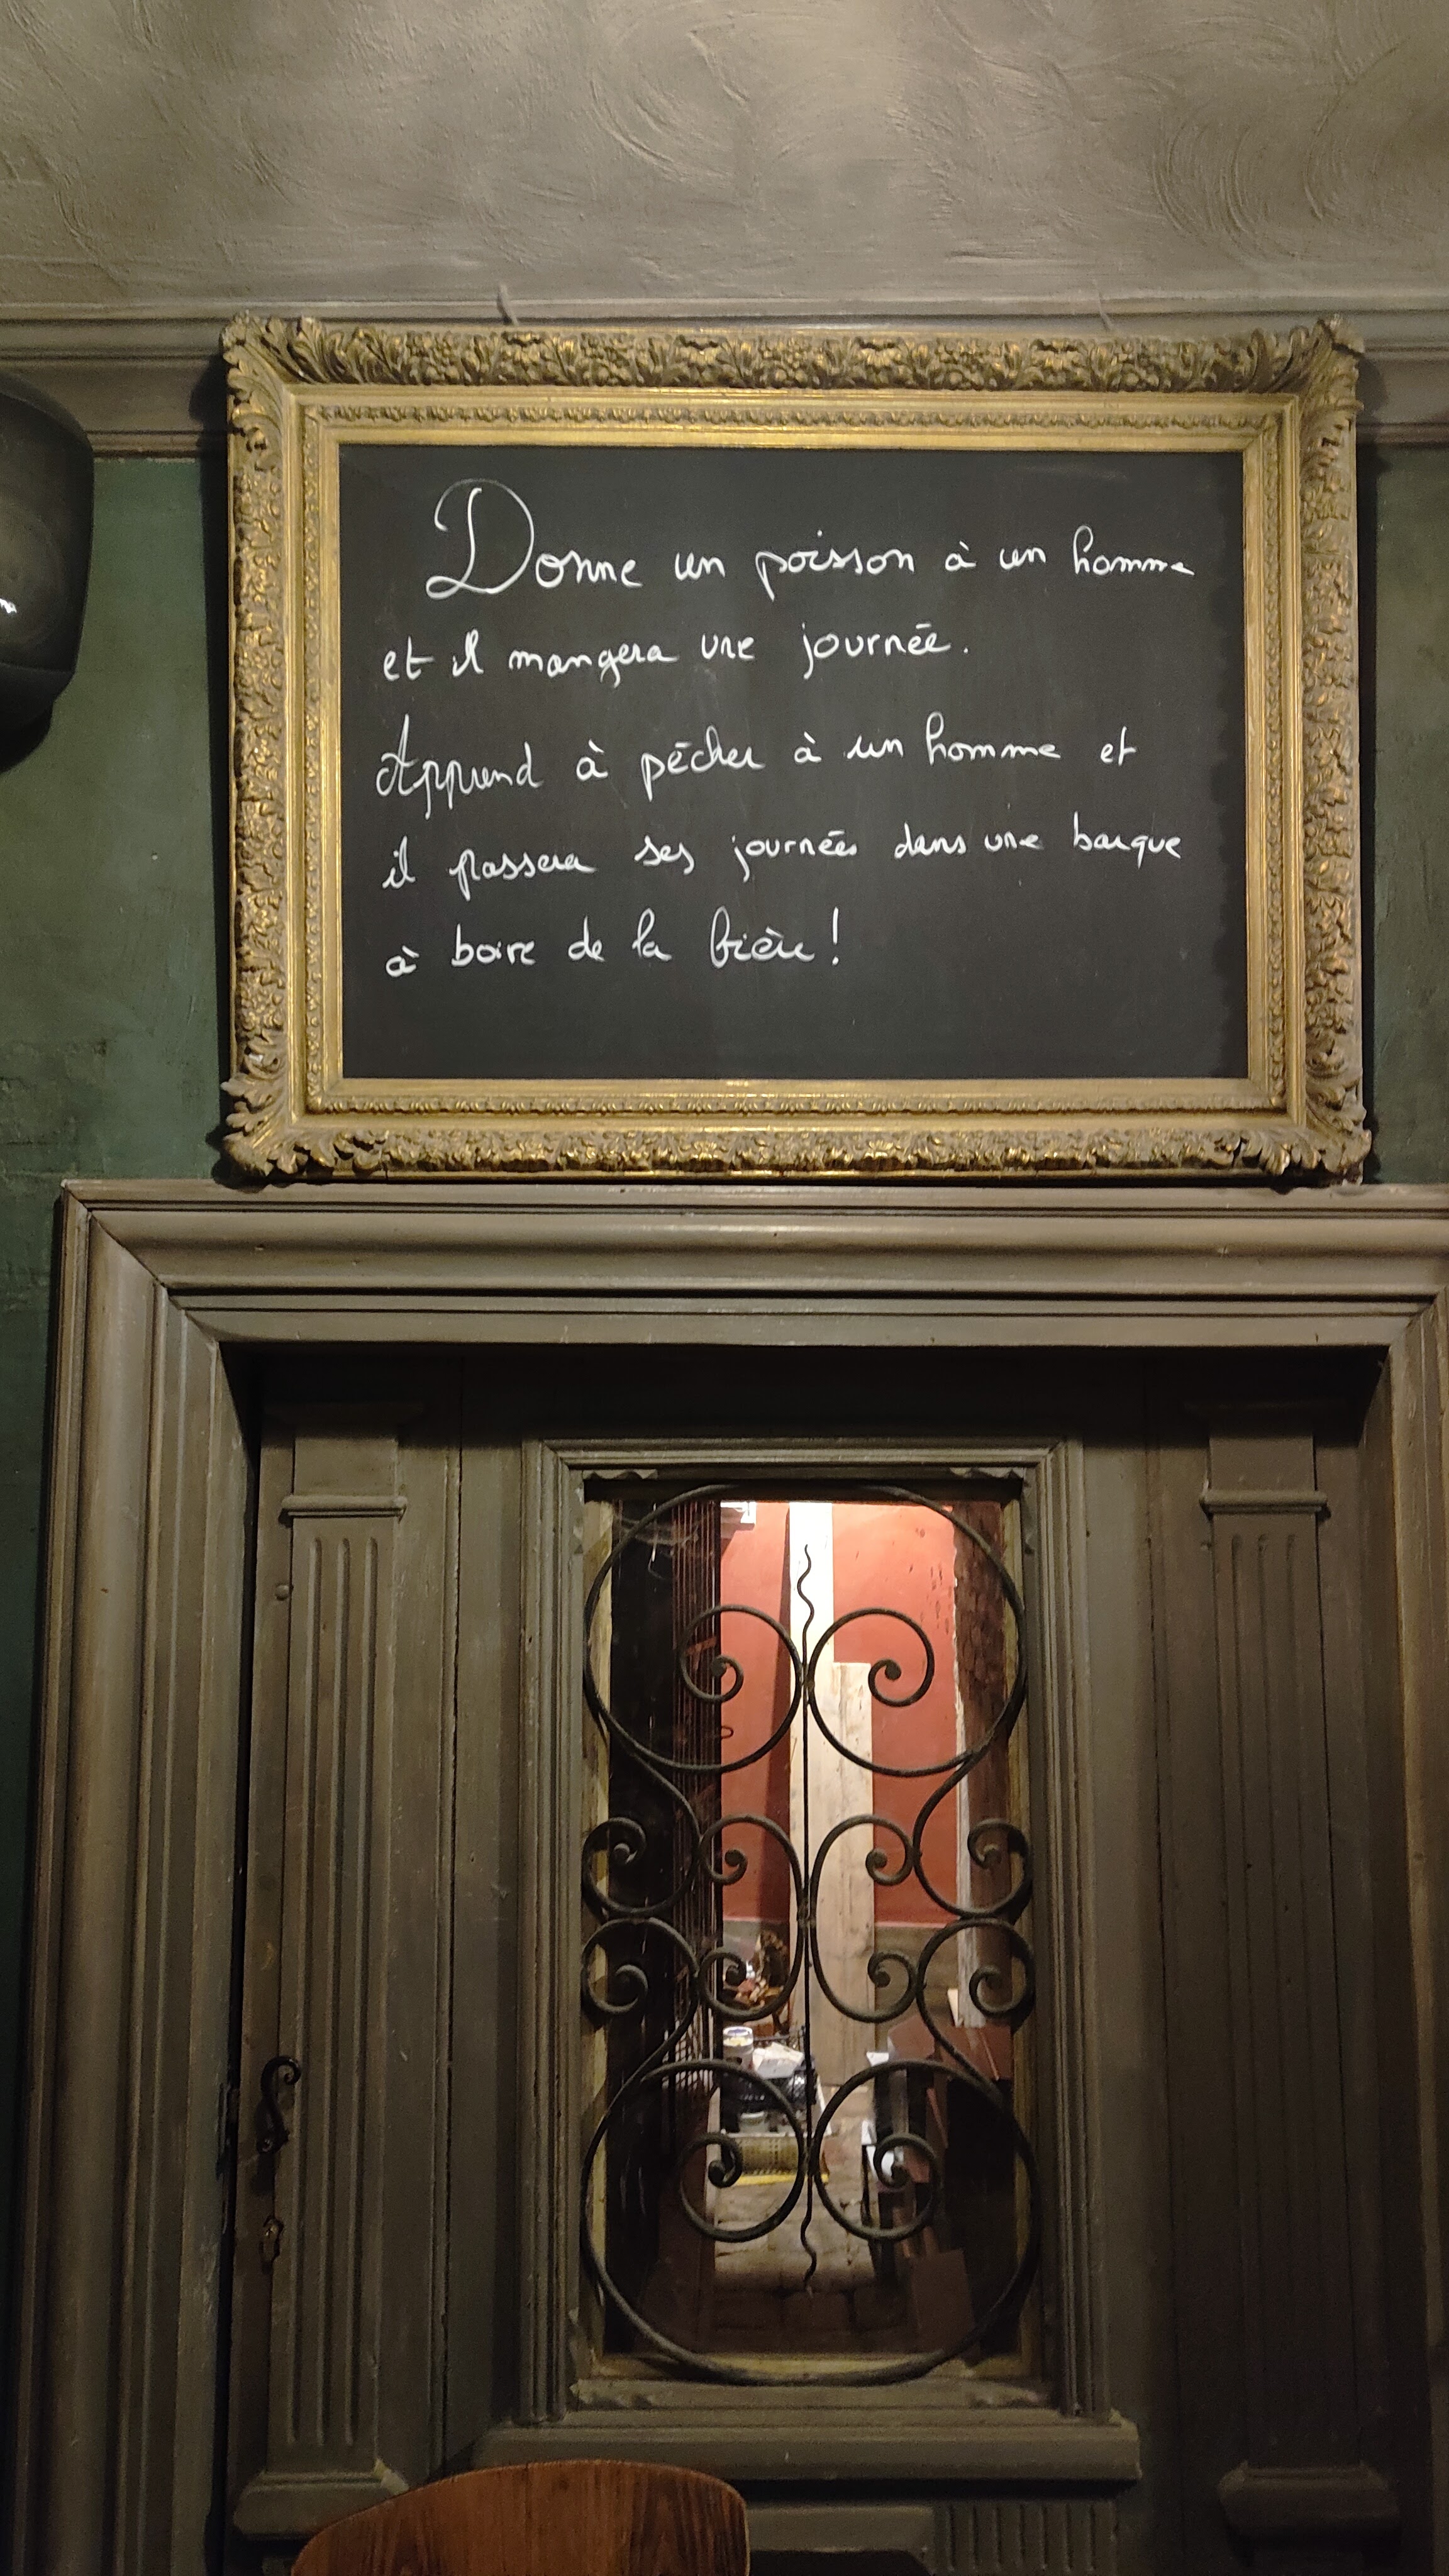 Donne un poisson à un homme
et il mangera une journée.
Apprend à pêcher à un homme et
il passera ses journées dans une barque
à boire de la bière !